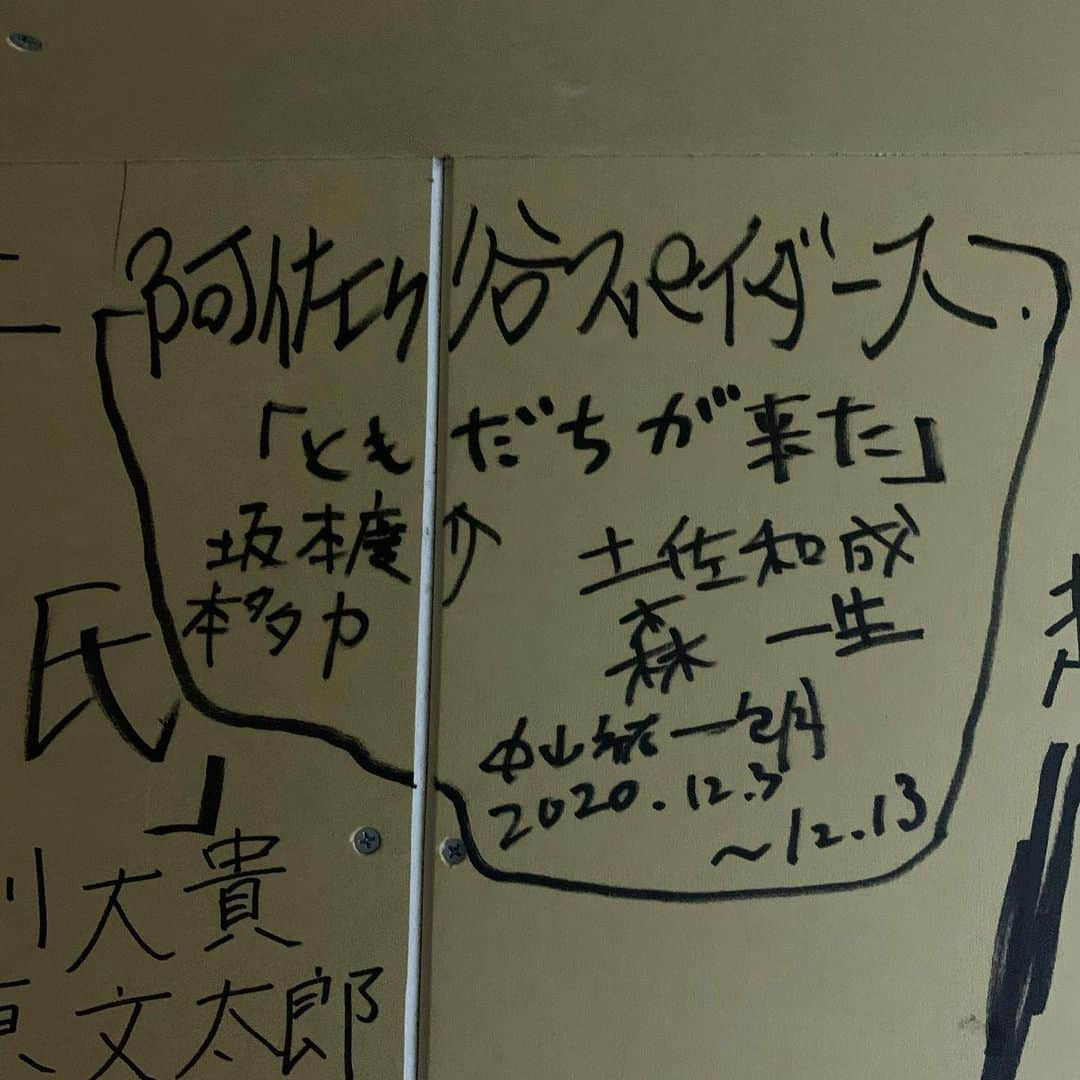 阿佐ヶ谷スパイダース
「ともだちが来た」
坂本慶介 土佐和成
本多力 森一生
中山祐一朗
2020.12.3
～12.13
氏
」
大貴
文太郎